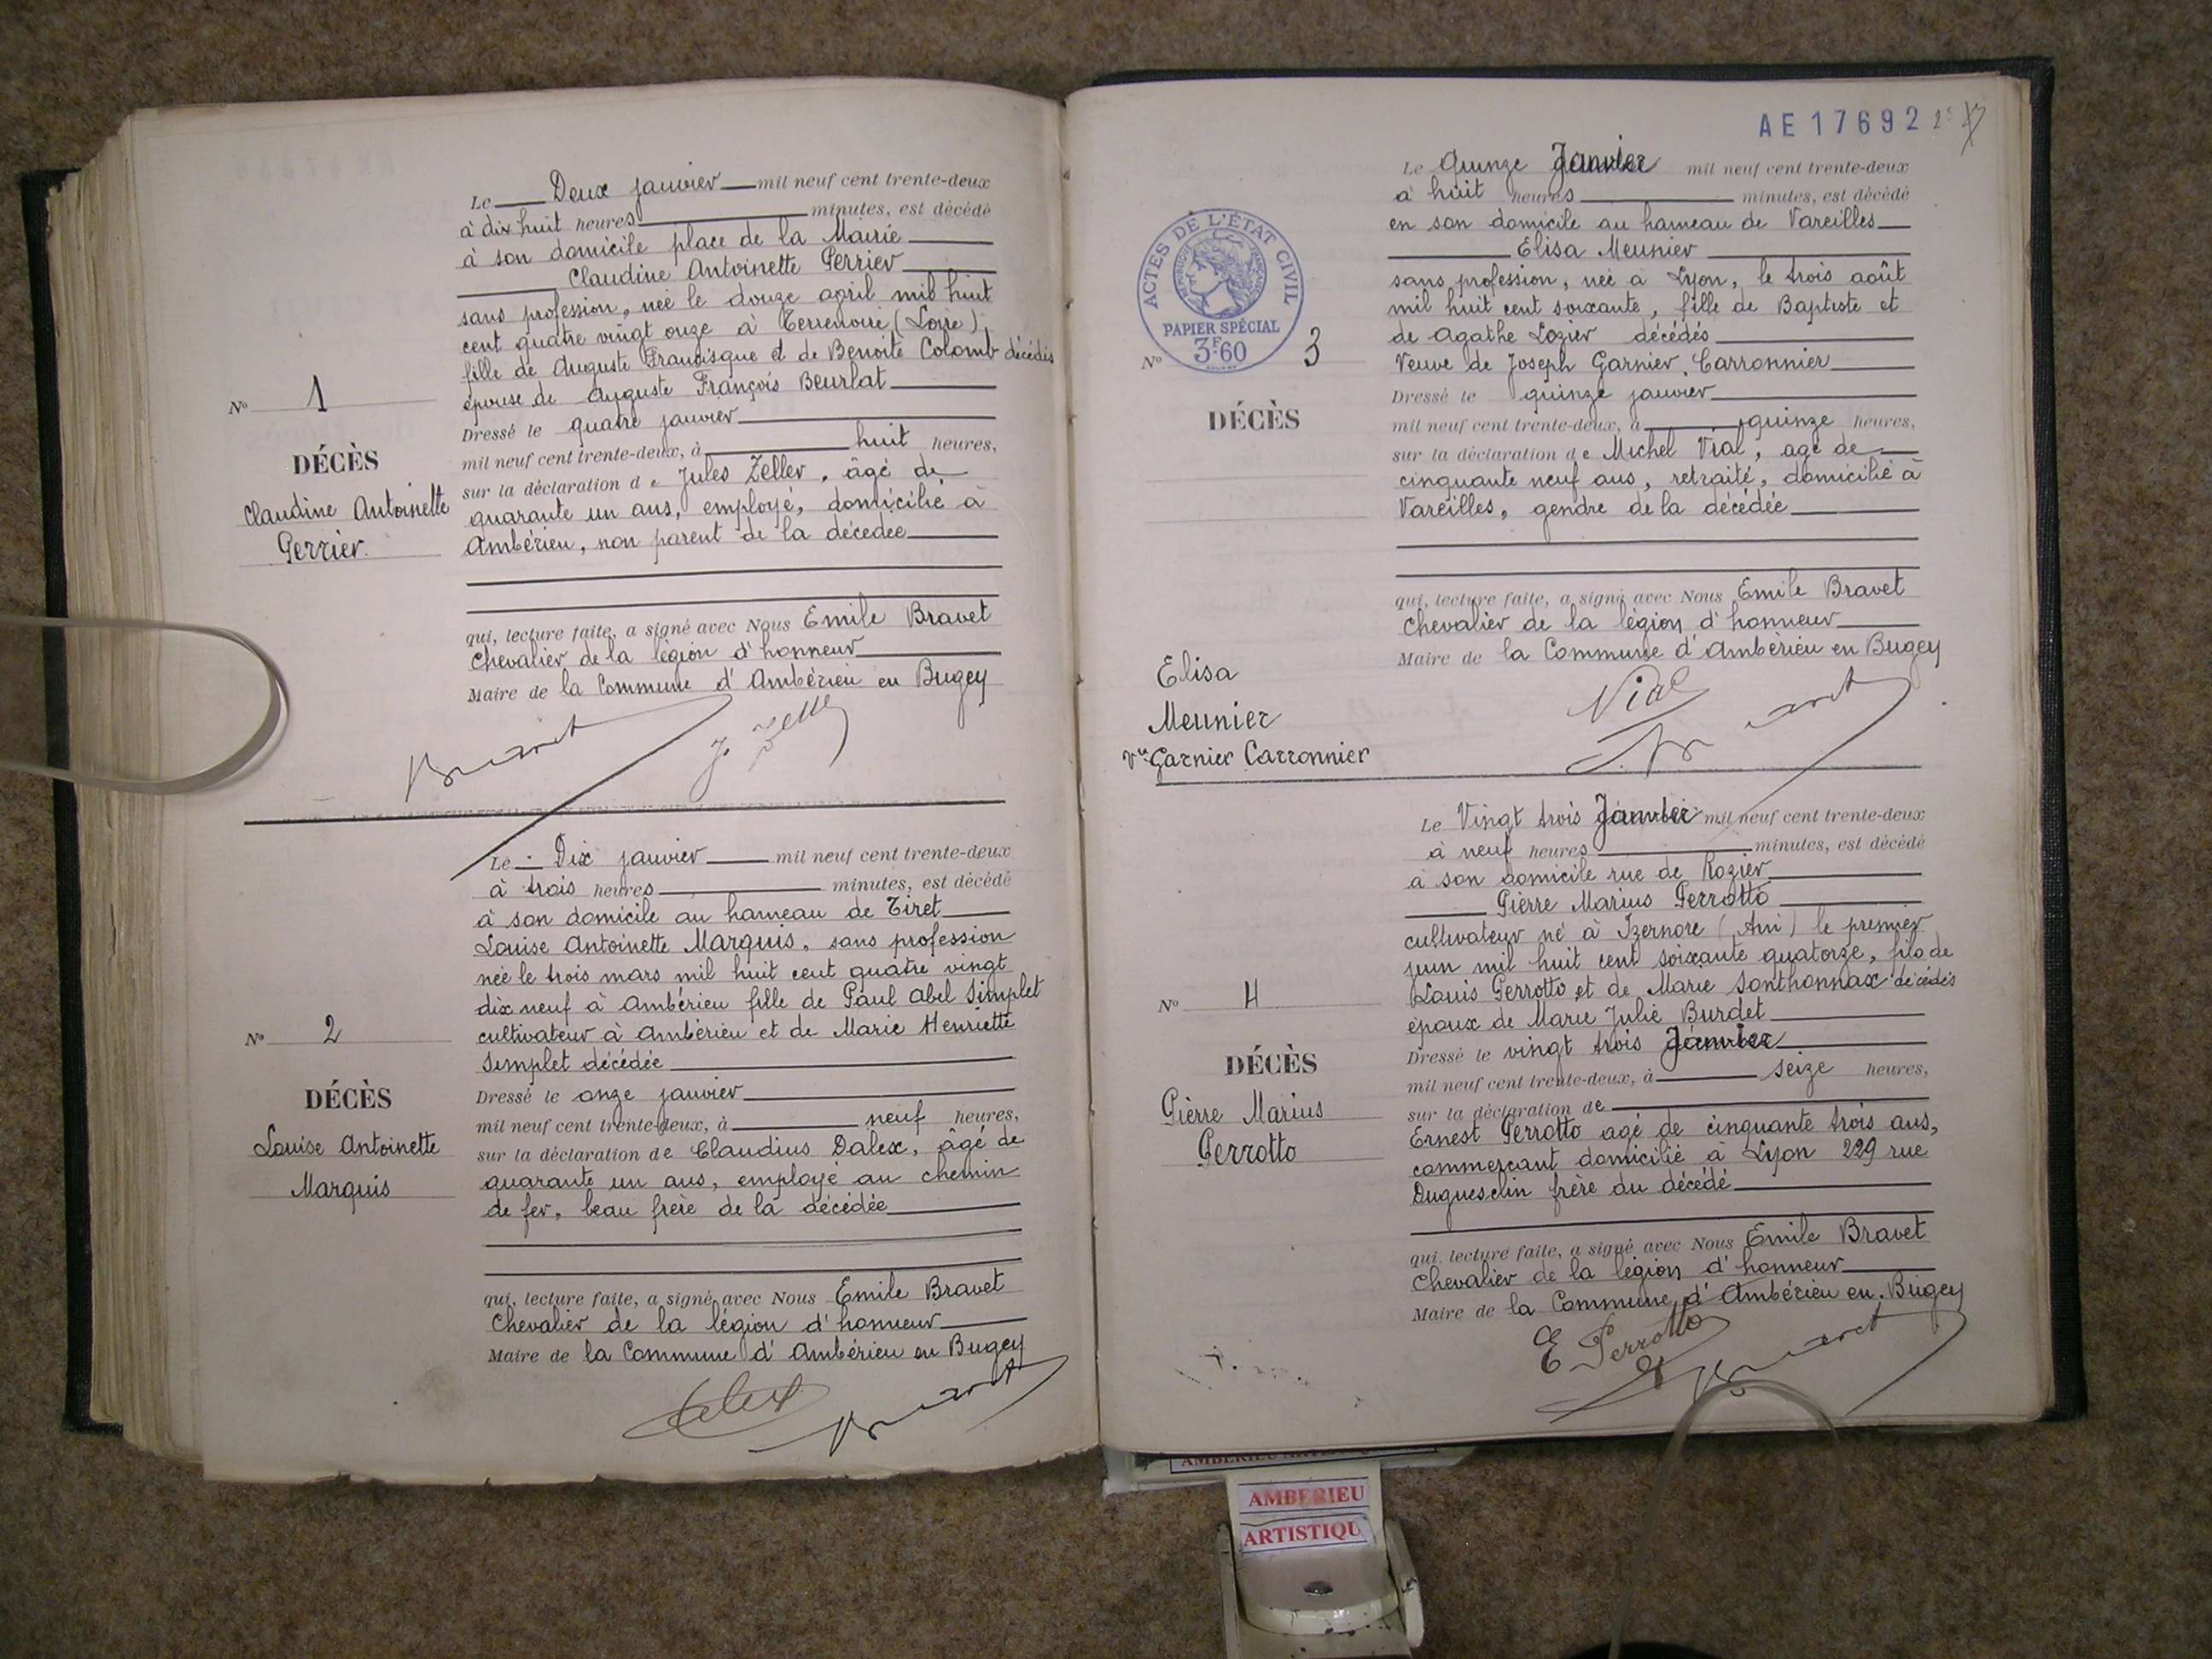 Le Deux janvier mil neuf cent trente-deux
à dix huit heures minutes, est décédé
à son domicile place de la Mairie
Claudine Antoinette Perrier
sans profession, née le douze april mil huit
cent quatre vingt onze à Terrenoire (Loire),
fille de Auguste Francisque et de Benoite Colomb décédés
épouse de Auguste François Beurlat
Dressé le quatre janvier
mil neuf cent trente-deux, à huit heures,
sur la déclaration de Jules Zeller, âgé de
quarante un ans, employé, domicilié à
Ambérieu, non parent de la décédée
qui, lecture faite, a signé avec Nous Emile Bravet
Chevalier de la légion d'honneur
Maire de la Commune d'Ambérieu en Bugey
Bravet J. Zeller
No 1
DÉCÈS
Claudine Antoinette
Perrier.
Le Dix janvier mil neuf cent trente-deux
à trois heures minutes, est décédé
à son domicile au hameau de Tiret
Louise Antoinette Marquis, sans profession
née le trois mars mil huit cent quatre vingt
dix neuf à Ambérieu fille de Paul Abel Simplet
cultivateur à Ambérieu et de Marie Henriette
Simplet décédée
Dressé le onze janvier
mil neuf cent trente-deux, à neuf heures,
sur la déclaration de Claudius Dalex, âgé de
quarante un ans, employé au chemin
de fer, beau frère de la décédée
qui, lecture faite, a signé avec Nous Emile Bravet
Chevalier de la légion d'honneur
Maire de la Commune d'Ambérieu en Bugey
Dalex Bravet
No 2
DÉCÈS
Louise Antoinette
Marquis
AE17692
ACTES DE L'ÉTAT CIVIL
PAPIER SPÉCIAL
3F60
Le Quinze Janvier mil neuf cent trente-deux
à huit heures minutes, est décédé
en son domicile au hameau de Vareilles
Elisa Meunier
sans profession, née à Lyon, le trois août
mil huit cent soixante, fille de Baptiste et
de Agathe Lozier décédés
Veuve de Joseph Garnier Carronnier
Dressé le quinze janvier
mil neuf cent trente-deux, à quinze heures,
sur la déclaration de Michel Vial, agé de
cinquante neuf ans, retraité, domicilié à
Vareilles, gendre de la décédée
qui, lecture faite, a signé avec Nous Emile Bravet
Chevalier de la légion d'honneur
Maire de la Commune d'Ambérieu en Bugey
Vial
Bravet
No 3
DÉCÈS
Elisa
Meunier
Vve Garnier Carronnier
Le Vingt trois Janvier mil neuf cent trente-deux
à neuf heures minutes, est décédé
à son domicile rue de Rozier
Pierre Marius Perrotto
cultivateur né à Izernore (Ain) le premier
juin mil huit cent soixante quatorze, fils de
Louis Perrotto et de Marie Sonthonnax décédés
époux de Marie Julie Burdet
Dressé le vingt trois Janvier
mil neuf cent trente-deux, à seize heures,
sur la déclaration de
Ernest Perrotto agé de cinquante trois ans,
commerçant domicilié à Lyon 229 rue
Duguesclin frère du décédé
qui, lecture faite, a signé avec Nous Emile Bravet
Chevalier de la légion d'honneur
Maire de la Commune d'Ambérieu en Bugey
E Perrotto
Bravet
No 4
DÉCÈS
Pièrre Marius
Perrotto
AMBERIEU
ARTISTIQU